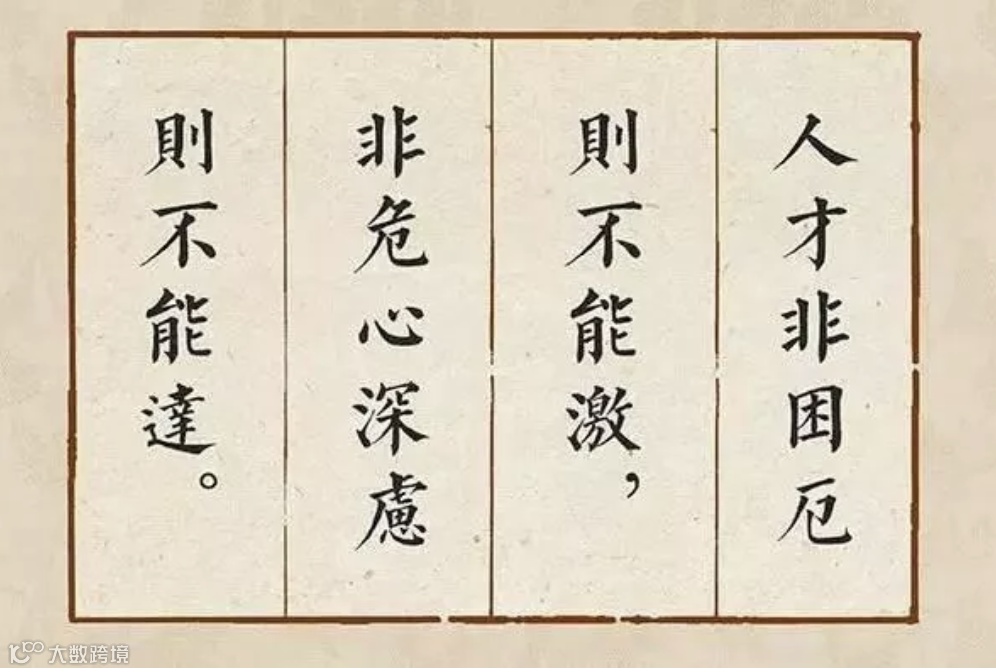 人才非困厄
則不能激，
非危心深慮
則不能達。
大数跨境